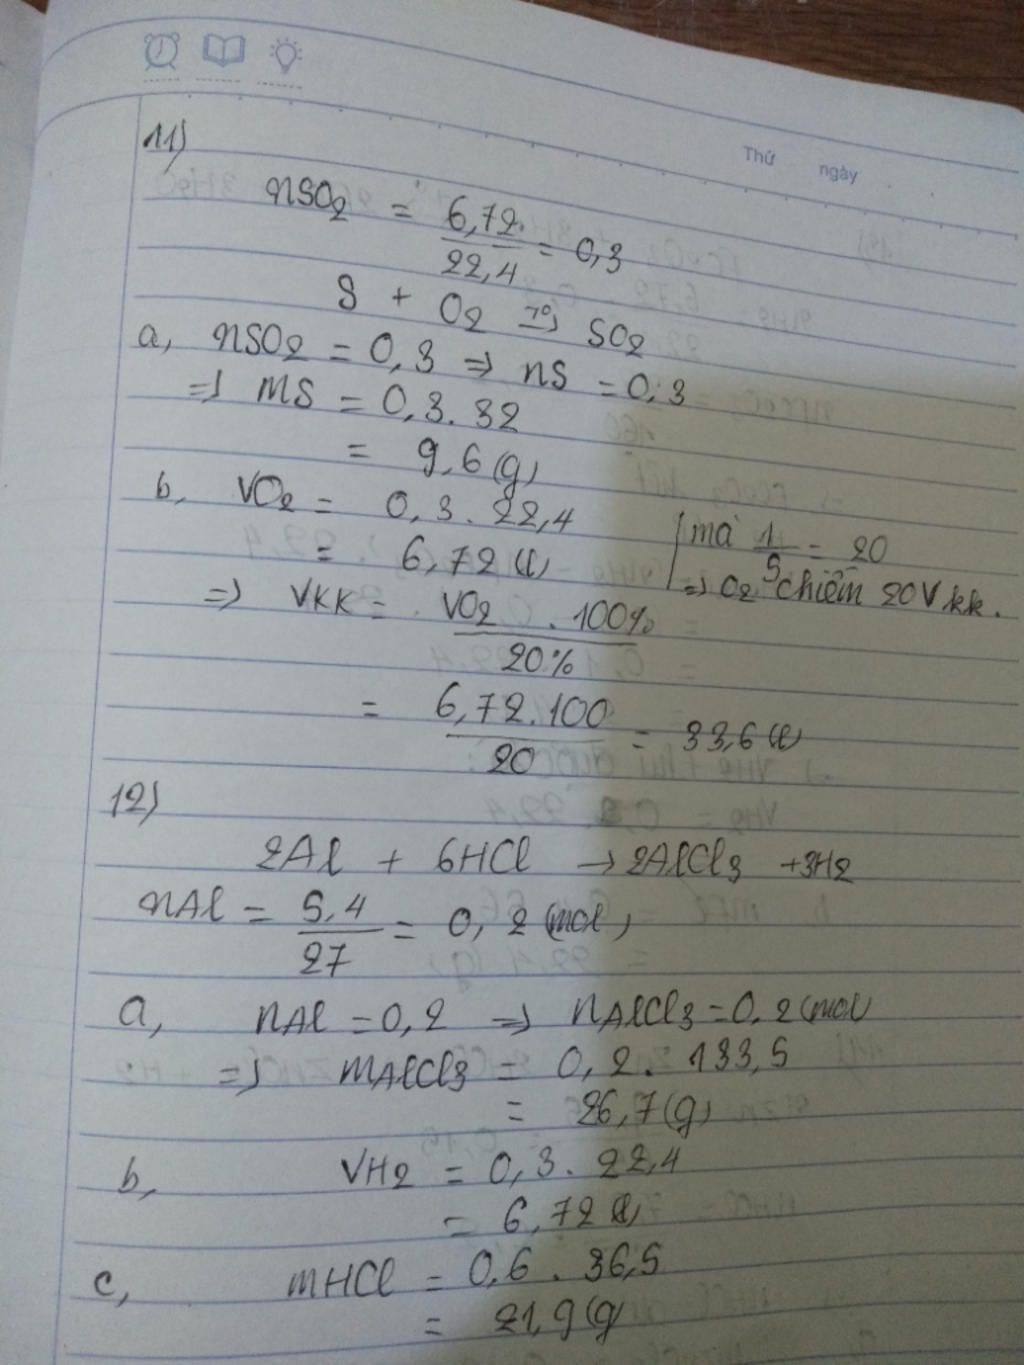 Thứ ngày
11)
nSO2 = 6,72 / 22,4 = 0,3
S + O2 →(T°) SO2
a, nSO2 = 0,3 => nS = 0,3
=> mS = 0,3. 32
= 9,6 (g)
b, VO2 = 0,3. 22,4
= 6,72 (l)
mà 1/5 = 20
=> O2 chiếm 20 Vkk.
=> VKK = VO2 . 100% / 20%
= 6,72.100 / 20 = 33,6 (l)
12)
2Al + 6HCl → 2AlCl3 + 3H2
nAl = 5,4 / 27 = 0,2 (mol)
a, nAl = 0,2 => nAlCl3 = 0,2 (mol)
=> mAlCl3 = 0,2. 133,5
= 26,7 (g)
b, VH2 = 0,3. 22,4
= 6,72 (l)
c, mHCl = 0,6 . 36,5
= 21,9 (g)